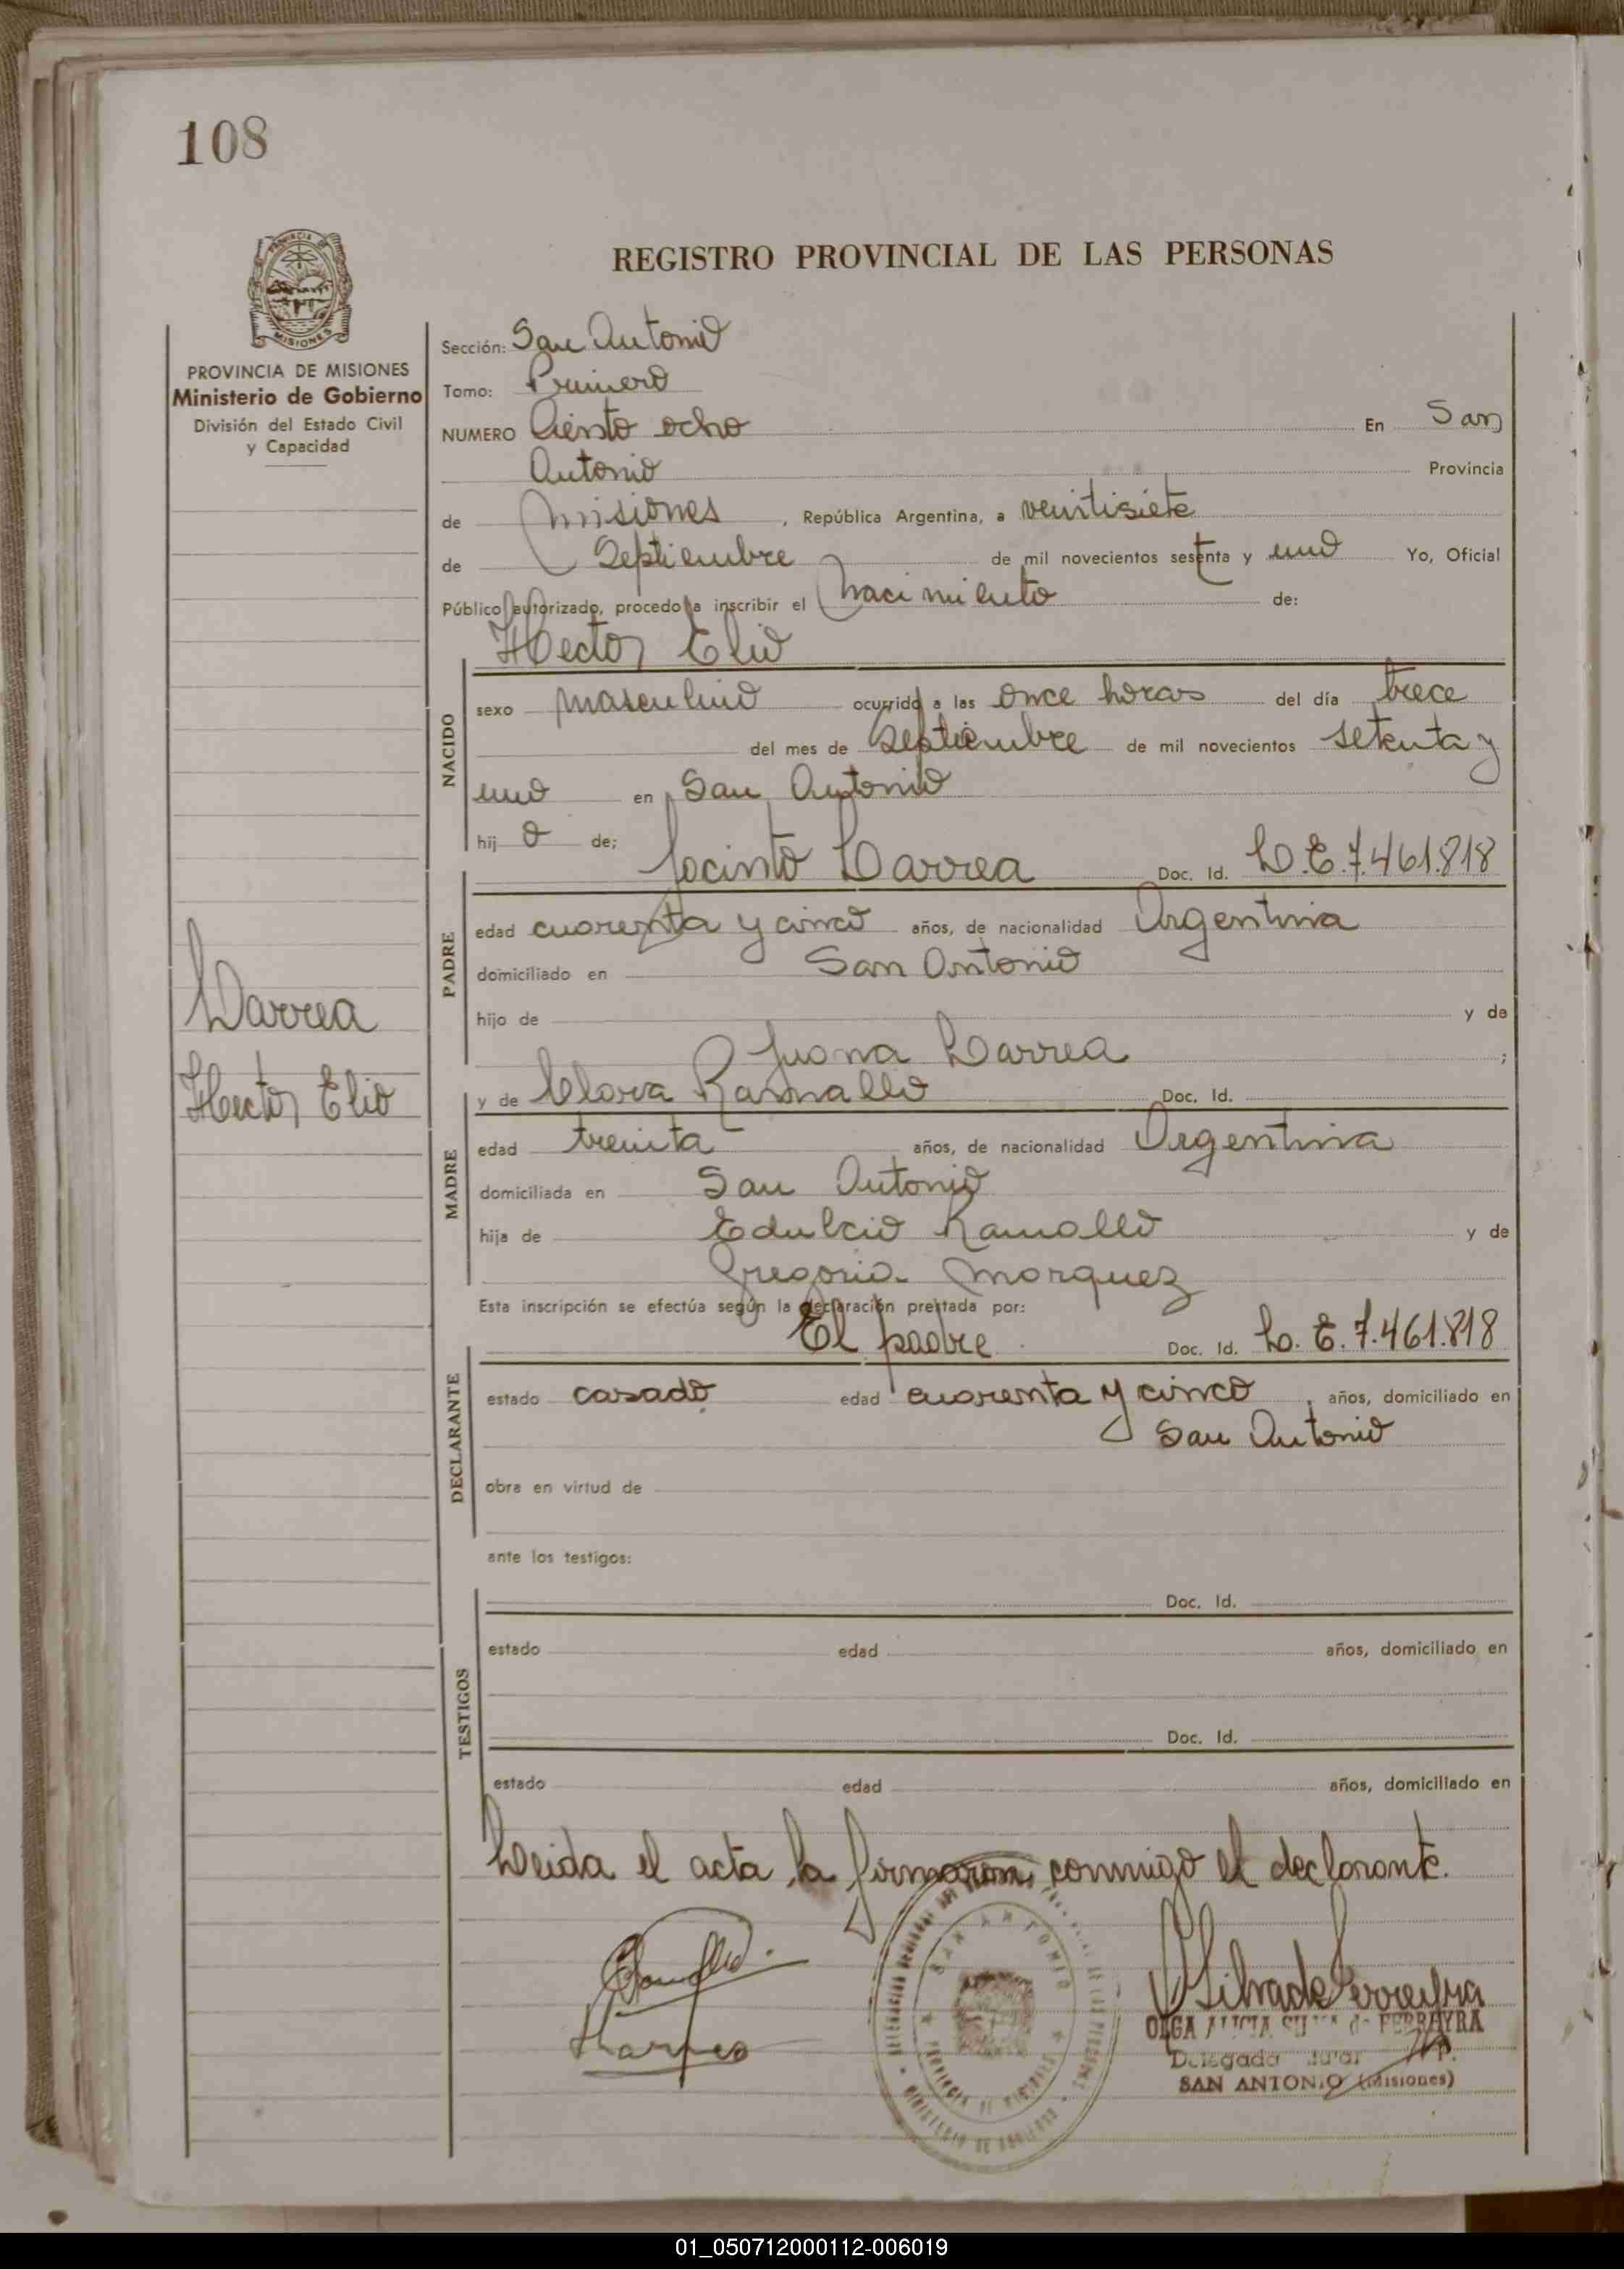 108
REGISTRO PROVINCIAL DE LAS PERSONAS
PROVINCIA DE MISIONES
Ministerio de Gobierno
División del Estado Civil
y Capacidad
Larrea
Hector Elio
Sección: San Antonio
Tomo: Primero
NUMERO Ciento ocho En San
Antonio Provincia
de Misiones , República Argentina, a veintisiete
de Septiembre de mil novecientos setenta y uno Yo, Oficial
Público autorizado, procedo a inscribir el nacimiento de:
Hector Elio
NACIDO
sexo masculino ocurrido a las once horas del día trece
del mes de Septiembre de mil novecientos setenta y
uno en San Antonio
hij o de;
Jacinto Larrea Doc. Id. L.E.7.461.818
PADRE
edad cuarenta y cinco años, de nacionalidad Argentina
domiciliado en San Antonio
hijo de y de
Juana Larrea ;
y de Clara Ramallo Doc. Id.
MADRE
edad treinta años, de nacionalidad Argentina
domiciliada en San Antonio
hija de Edulcio Ramallo y de
Gregoria Marquez
Esta inscripción se efectúa según la declaración prestada por:
El padre Doc. Id. L.E.7.461.818
DECLARANTE
estado casado edad cuarenta y cinco , años, domiciliado en
San Antonio
obra en virtud de
ante los testigos:
Doc. Id.
TESTIGOS
estado edad años, domiciliado en
Doc. Id.
estado edad años, domiciliado en
Leida el acta la firmaron conmigo el declarante.
Larrea
OLGA ALICIA SILVA de FERREYRA
Delegada Titular
SAN ANTONIO (Misiones)
SAN ANTONIO
PROVINCIA DE MISIONES
01_050712000112-006019